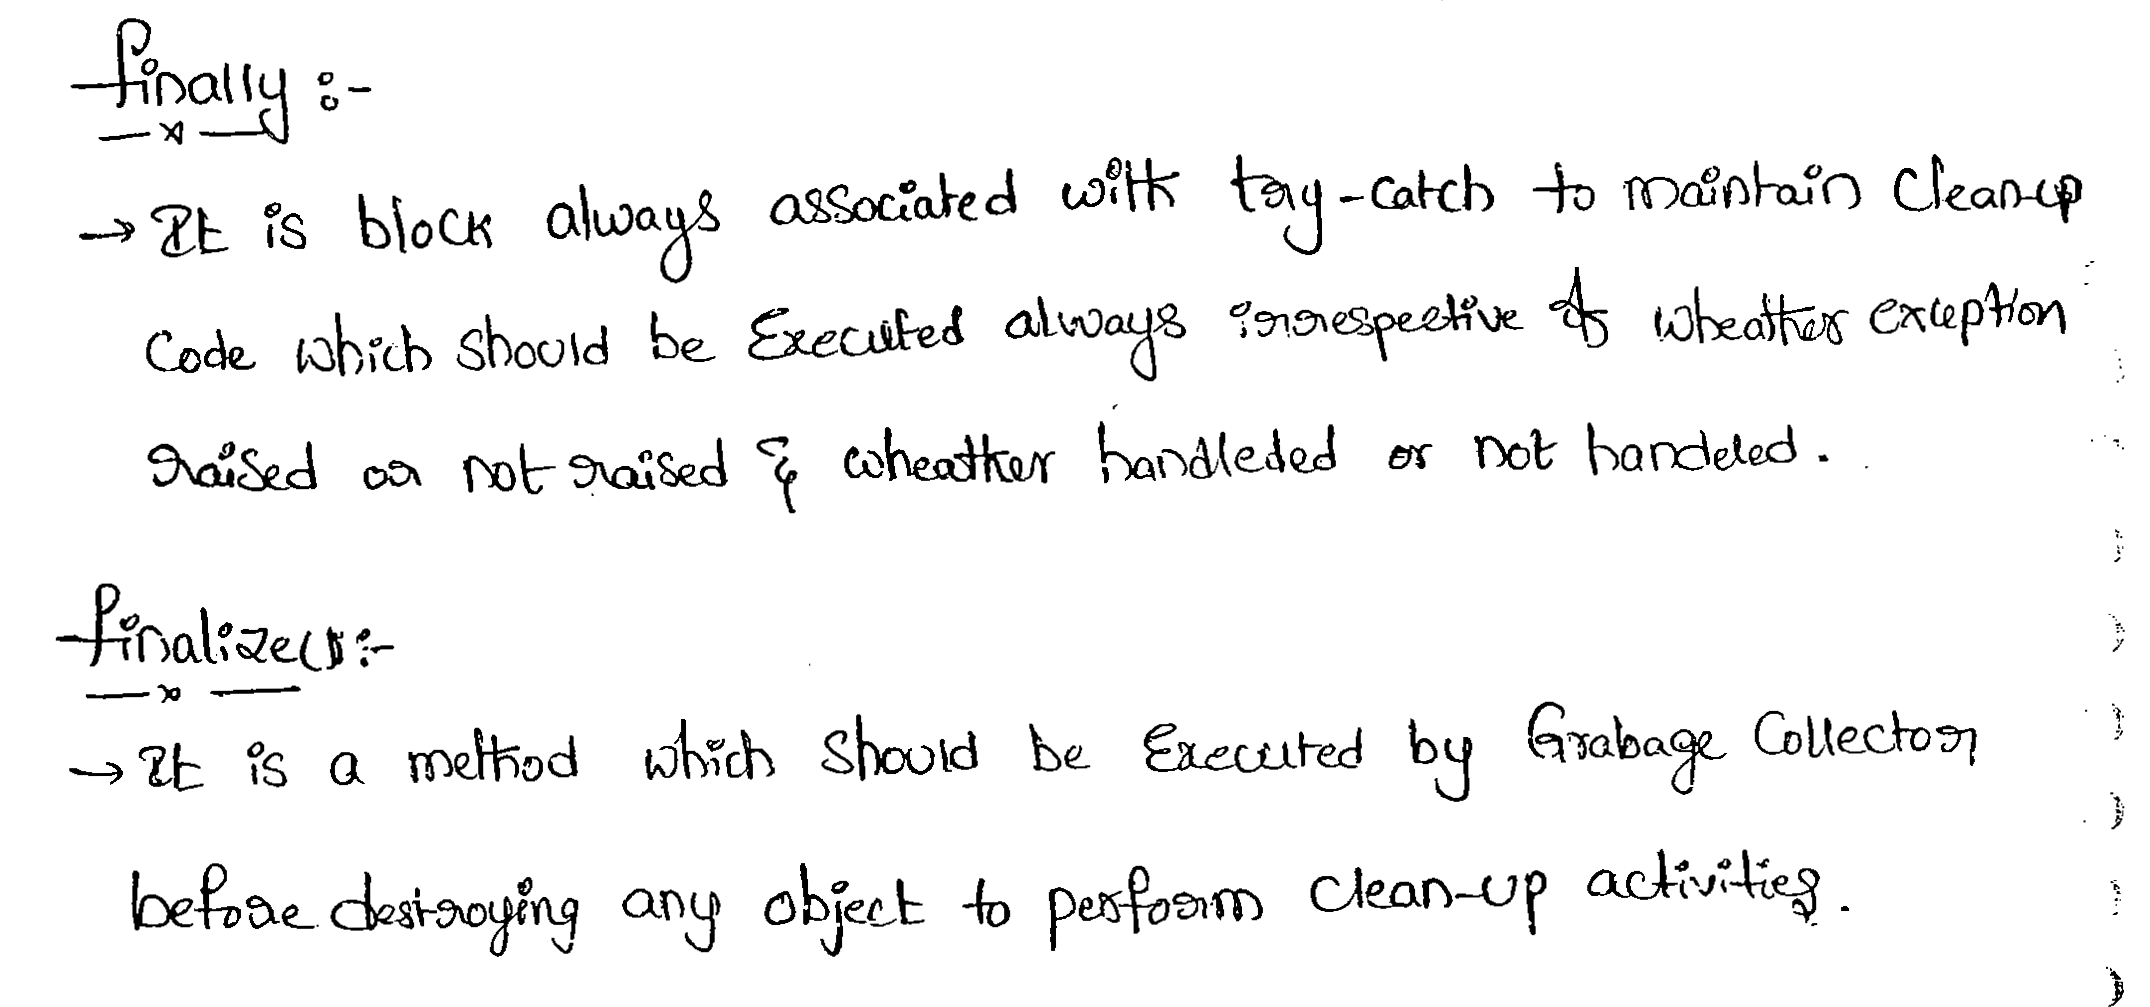 finally :-
→ It is block always associated with try-catch to maintain clean-up
Code which should be Executed always irrespective of wheather exception
raised or not raised & wheather handleded or not handeled.
finalize() :-
→ It is a method which should be Executed by Grabage Collector
before destroying any object to perform clean-up activities.